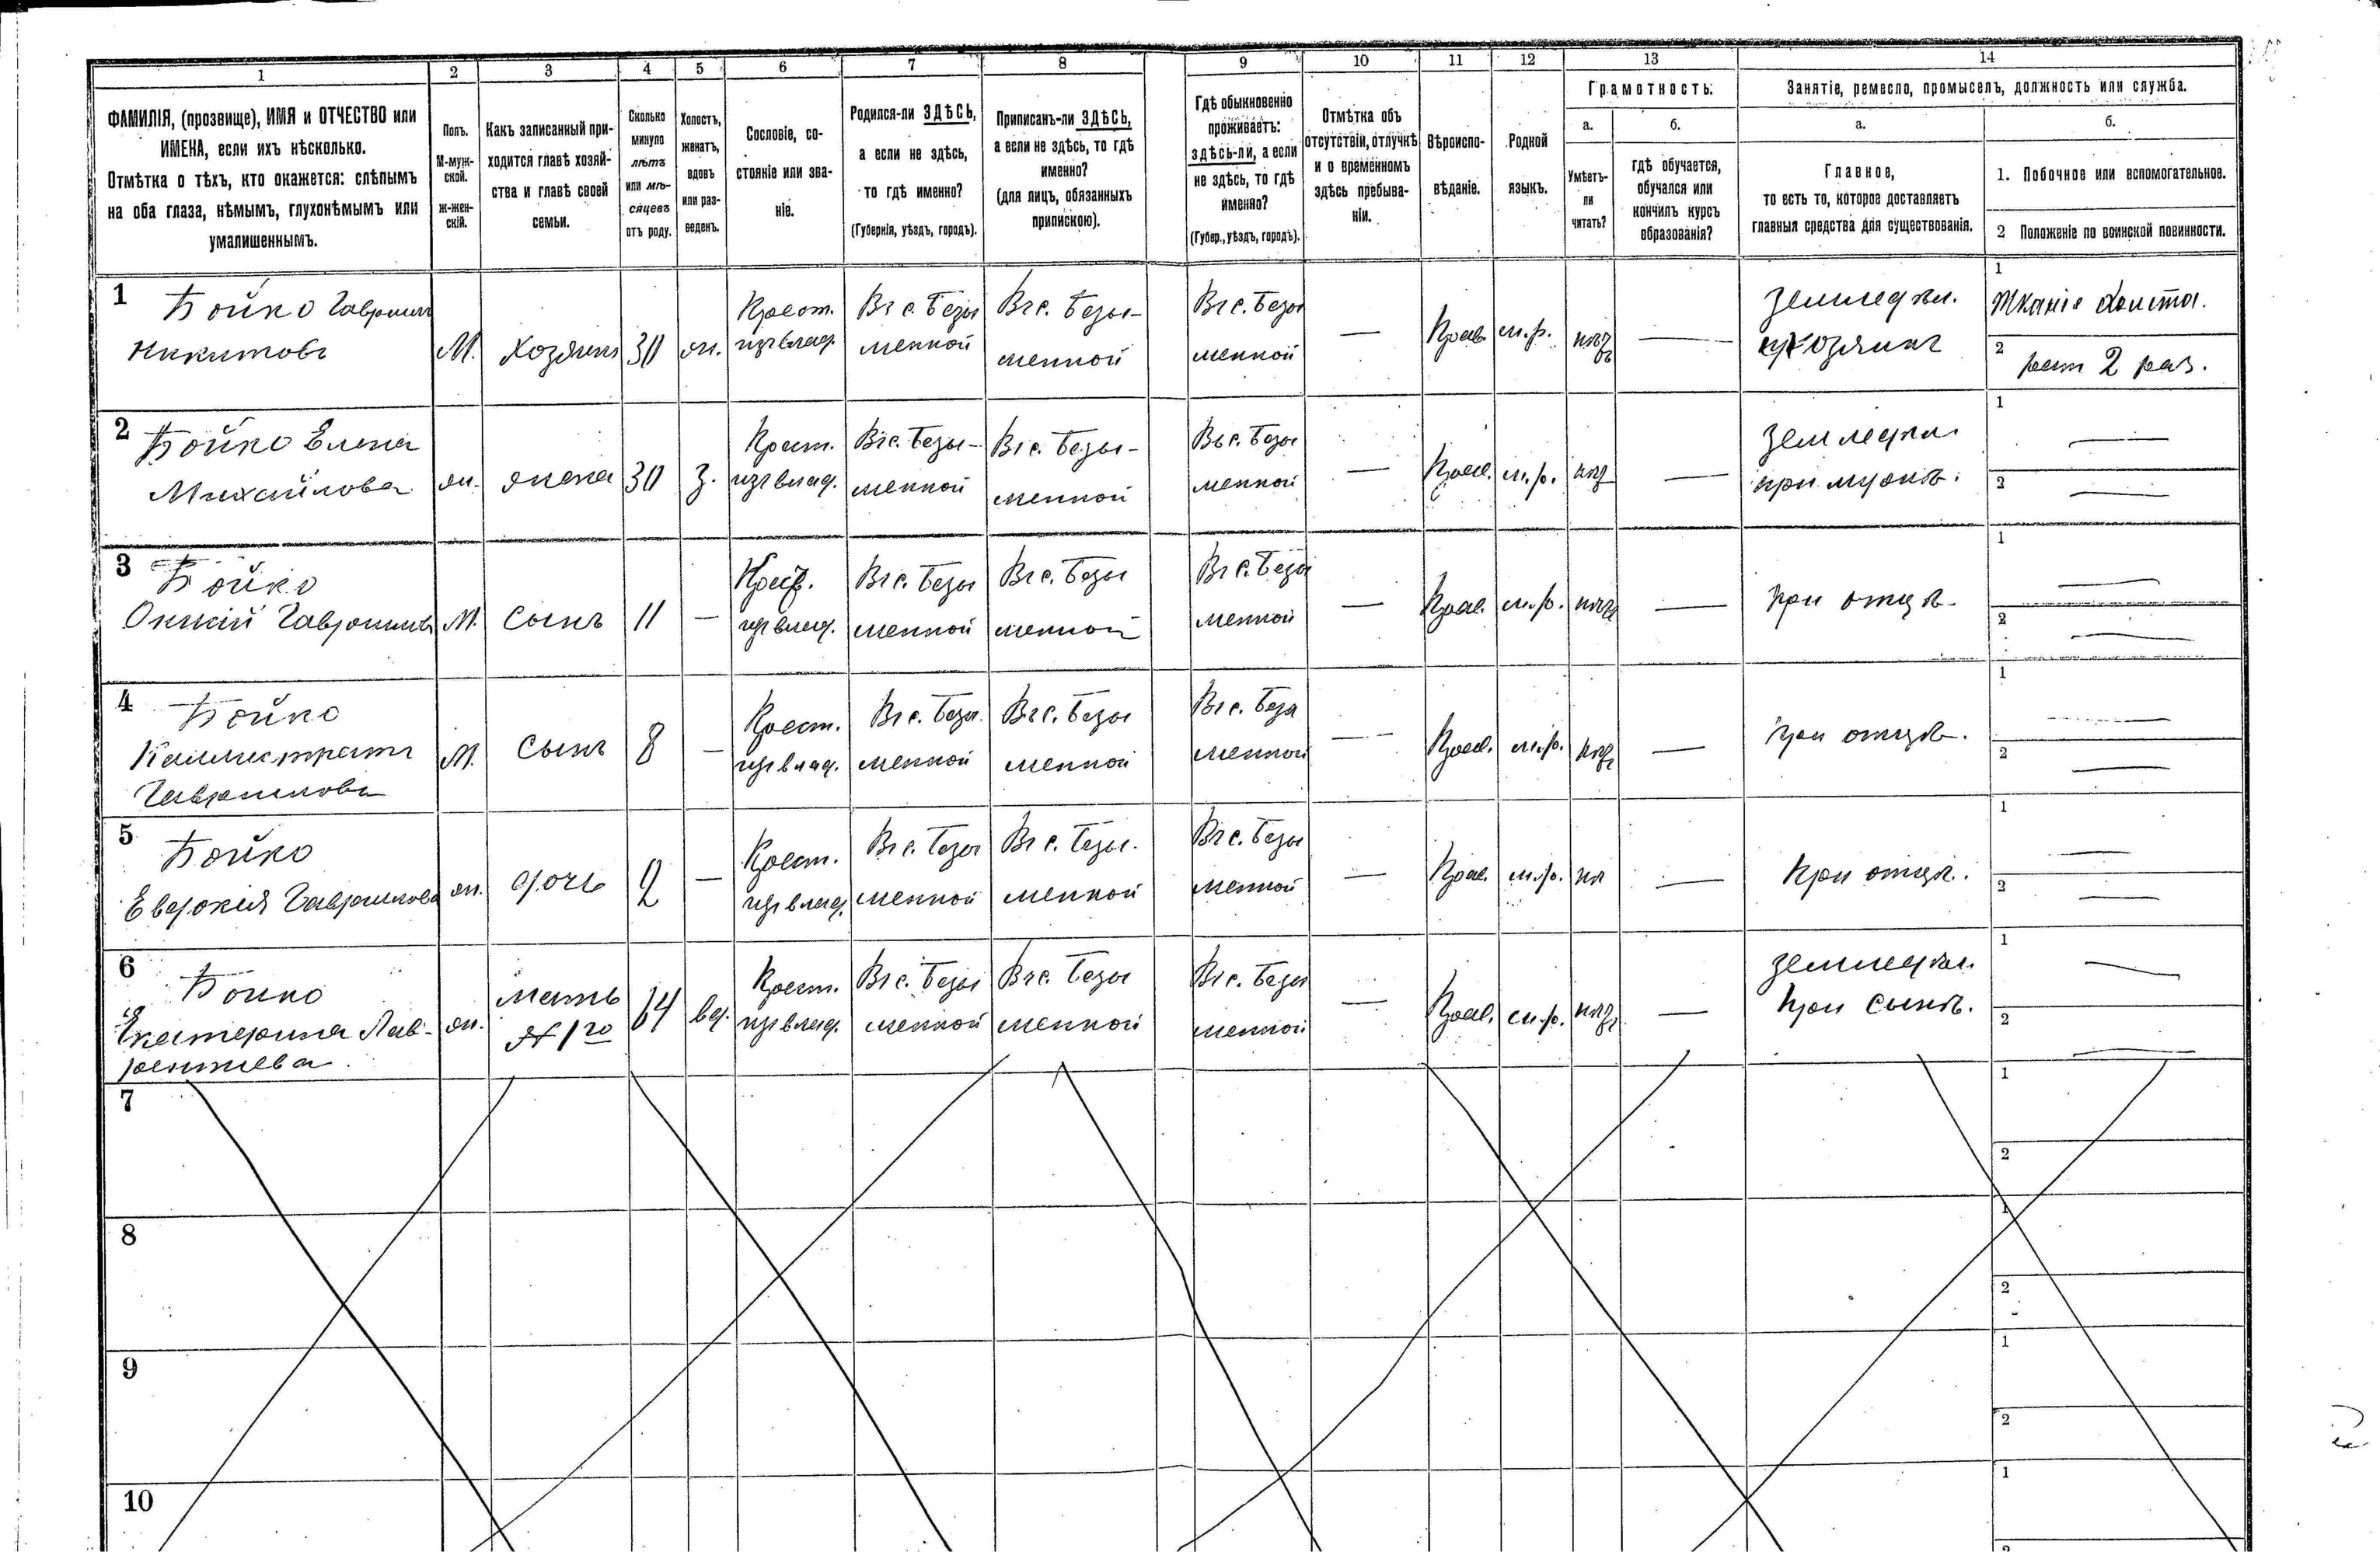 1 2 3 4 5 6 7 8 9 10 11 12 13 14
ФАМИЛІЯ, (прозвище), ИМЯ и ОТЧЕСТВО или
ИМЕНА, если ихъ нѣсколько.
Отмѣтка о тѣхъ, кто окажется: слѣпымъ
на оба глаза, нѣмымъ, глухонѣмымъ или
умалишеннымъ.
Полъ.
М-муж-
ской.
ж-жен-
скій.
Какъ записанный при-
ходится главѣ хозяй-
ства и главѣ своей
семьи.
Сколько
минуло
лѣтъ
или мѣ-
сяцевъ
отъ роду.
Холостъ,
женатъ,
вдовъ
или раз-
веденъ.
Сословіе, со-
стояніе или зва-
ніе.
Родился-ли ЗДѢСЬ,
а если не здѣсь,
то гдѣ именно?
(Губернія, уѣздъ, городъ).
Приписанъ-ли ЗДѢСЬ,
а если не здѣсь, то гдѣ
именно?
(для лицъ, обязанныхъ
припискою).
Гдѣ обыкновенно
проживаетъ:
здѣсь-ли, а если
не здѣсь, то гдѣ
именно?
(Губер., уѣздъ, городъ).
Отмѣтка объ
отсутствіи, отлучкѣ
и о временномъ
здѣсь пребыва-
ніи.
Вѣроиспо-
вѣданіе.
Родной
языкъ.
Грамотность:
а.
Умѣетъ-
ли
читать?
б.
гдѣ обучается,
обучался или
кончилъ курсъ
образованія?
Занятіе, ремесло, промыселъ, должность или служба.
а.
Главное,
то есть то, которое доставляетъ
главныя средства для существованія.
б.
1. Побочное или вспомогательное.
2 Положеніе по воинской повинности.
1 Бойко Гавріилъ
Никитовъ
М.
Хозяинъ
30
ж.
Крест.
изъ влад.
Въ с. Безы
менной
Въ с. Безы-
менной
Въ с. Безы
менной
—
Прав.
м.р.
нѣтъ
—
Земледѣл.
хозяинъ
1 Тканіе холста.
2 рат 2 раз.
2 Бойко Елена
Михайлова
ж.
жена
30
з.
Крест.
изъ влад.
Въ с. Безы-
менной
Въ с. Безы-
менной
Въ с. Безы
менной
—
Прав.
м.р.
нѣтъ
—
Земледѣл.
при мужѣ.
1 —
2 —
3 Бойко
Гавриловъ
М.
сынъ
11
—
Крест.
изъ влад.
Въ с. Безы
менной
Въ с. Безы
менной
Въ с. Безы
менной
—
Прав.
м.р.
нѣтъ
—
при отцѣ
1 —
2 —
4 Бойко
Каллистратъ
Гавриловъ
М.
сынъ
8
—
Крест.
изъ влад.
Въ с. Безы
менной
Въ с. Безы
менной
Въ с. Безы
менной
—
Прав.
м.р.
нѣтъ
—
при отцѣ.
1 —
2 —
5 Бойко
Евдокія Гаврилова
ж.
дочь
2
—
Крест.
изъ влад.
Въ с. Безы
менной
Въ с. Безы.
менной
Въ с. Безы
менной
—
Прав.
м.р.
нѣ
—
при отцѣ.
1 —
2 —
6 Бойко
Екатерина Лав-
рентіева
ж.
мать
№ 1го
64
вд.
Крест.
изъ влад.
Въ с. Безы
менной
Въ с. Безы
менной
Въ с. Безы
менной
—
Прав.
м.р.
нѣтъ
—
Земледѣл.
при сынѣ.
1 —
2 —
7
1
2
8
1
2
9
1
2
10
1
2